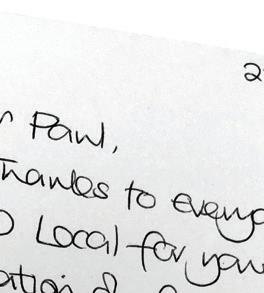 2
r Paul,
Thanks to everyo
O Local for your
ation of